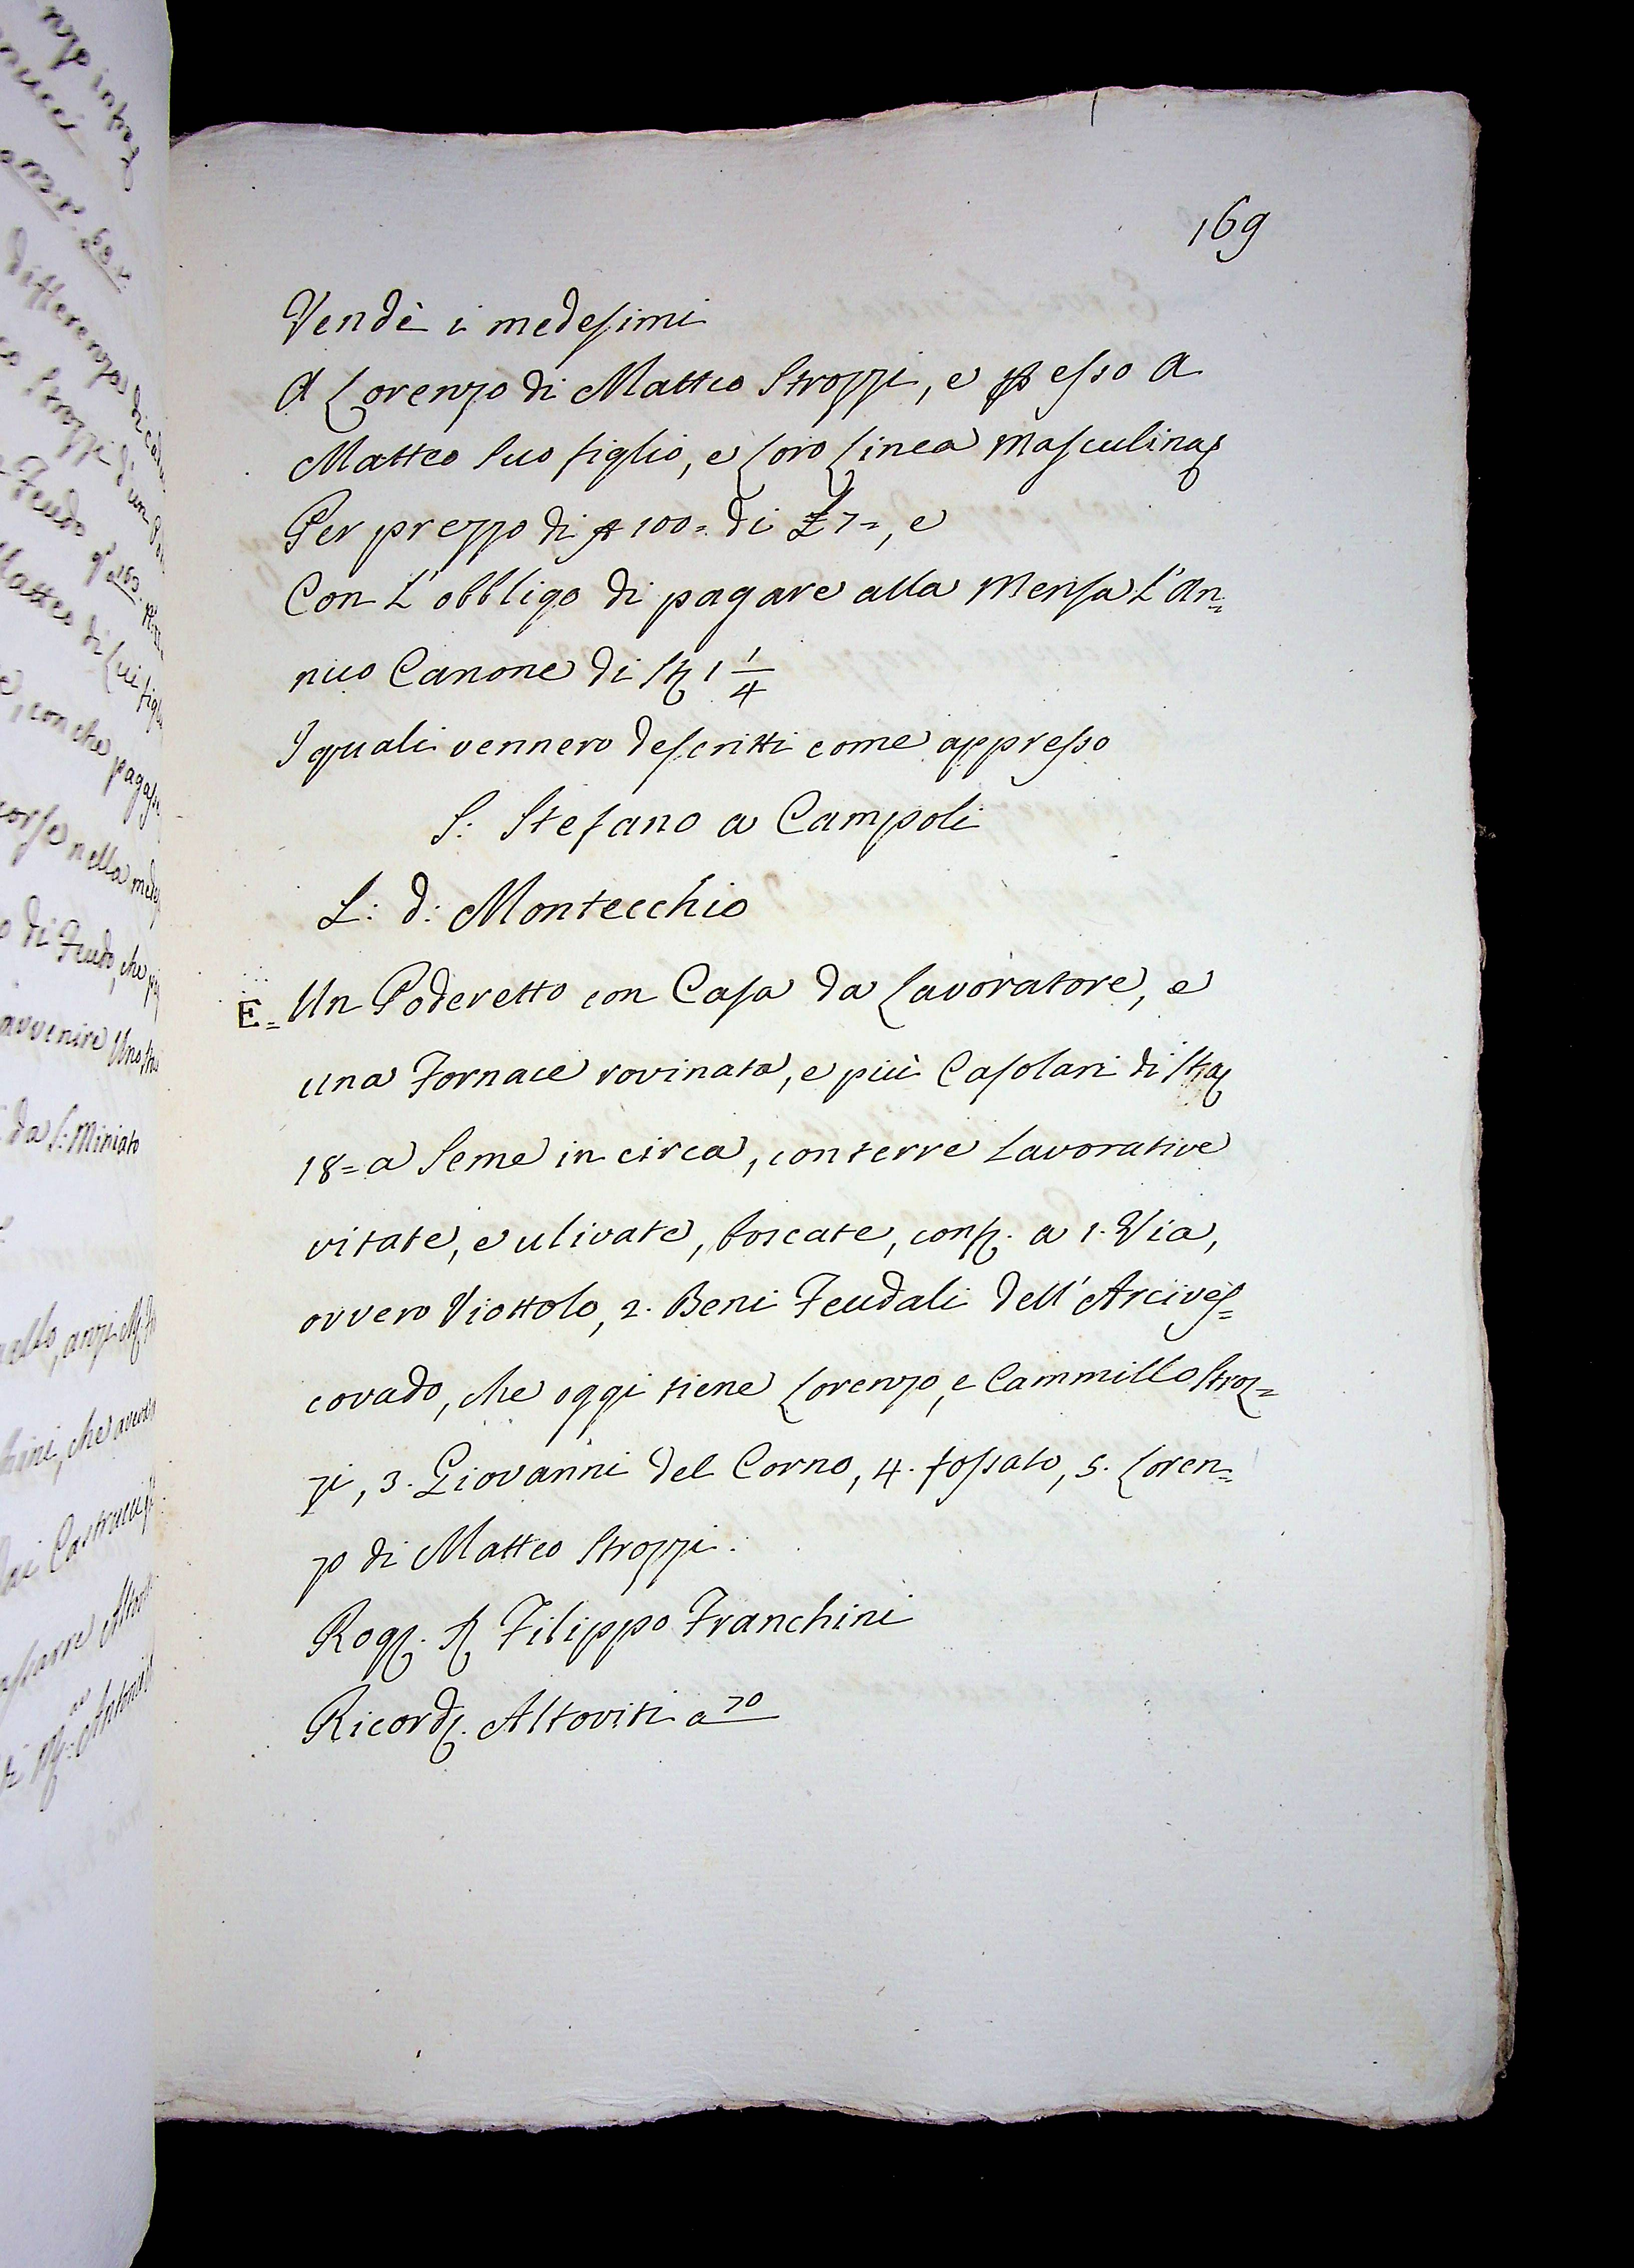 169
Vendè i medesimi
A Lorenzo di Matteo Strozzi, e p esso a
Matteo suo figlio, e loro linea masculina
Per prezzo di 100= di £ 7=, e
Con L'obbligo di pagare alla Mensa L'an=
nuo Canone di St 1 1/4
I quali vennero descritti come appresso
S: Stefano a Campoli
L: d: Montecchio
E= Un Poderetto con Casa da Lavoratore, e
una Fornace rovinata, e più Casolari di Sta
18= a seme in circa, con terre Lavorative
vitate, e ulivate, boscate, conf. a 1. Via,
ovvero Viottolo, 2. Beni Feudali dell'Arcives=
covado, che oggi tiene Lorenzo, e Cammillo Stroz=
zi, 3. Giovanni del Corno, 4. fossato, 5. Loren=
zo di Matteo Strozzi.
Rog. S Filippo Franchini
Ricord. Altoviti a 70
differenza di
Strozzi d'un
Feudo
Matteo di Lui figlio
con che pagasse
nella
di Feudo, che
avvenire Uno
da S: Miniato
che
Castrucci